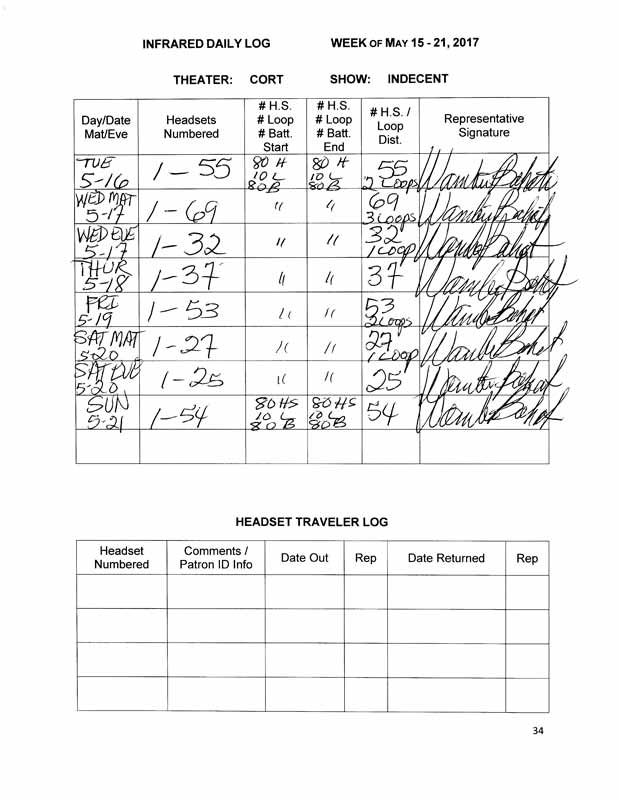 INFRARED DAILY LOG WEEK OF MAY 15 - 21, 2017
THEATER: CORT SHOW: INDECENT
Day/Date Mat/Eve Headsets Numbered # H.S. # Loop # Batt. Start # H.S. # Loop # Batt. End # H.S. / Loop Dist. Representative Signature
TUE 5-16 1-55 80 H 10 L 80B 80 H 10 L 80B 55 2 Loops
WED MAT 5-17 1-69 " " 69 3 Loops
WED EVE 5-17 1-32 " " 32 1 Loop
THUR 5-18 1-37 " " 37
FRI 5-19 1-53 " " 53 2 Loops
SAT MAT 5-20 1-27 " " 27 1 Loop
SAT EVE 5-20 1-25 " " 25
SUN 5-21 1-54 80 HS 10 L 80 B 80 HS 10 L 80B 54
HEADSET TRAVELER LOG
Headset Numbered Comments / Patron ID Info Date Out Rep Date Returned Rep
34